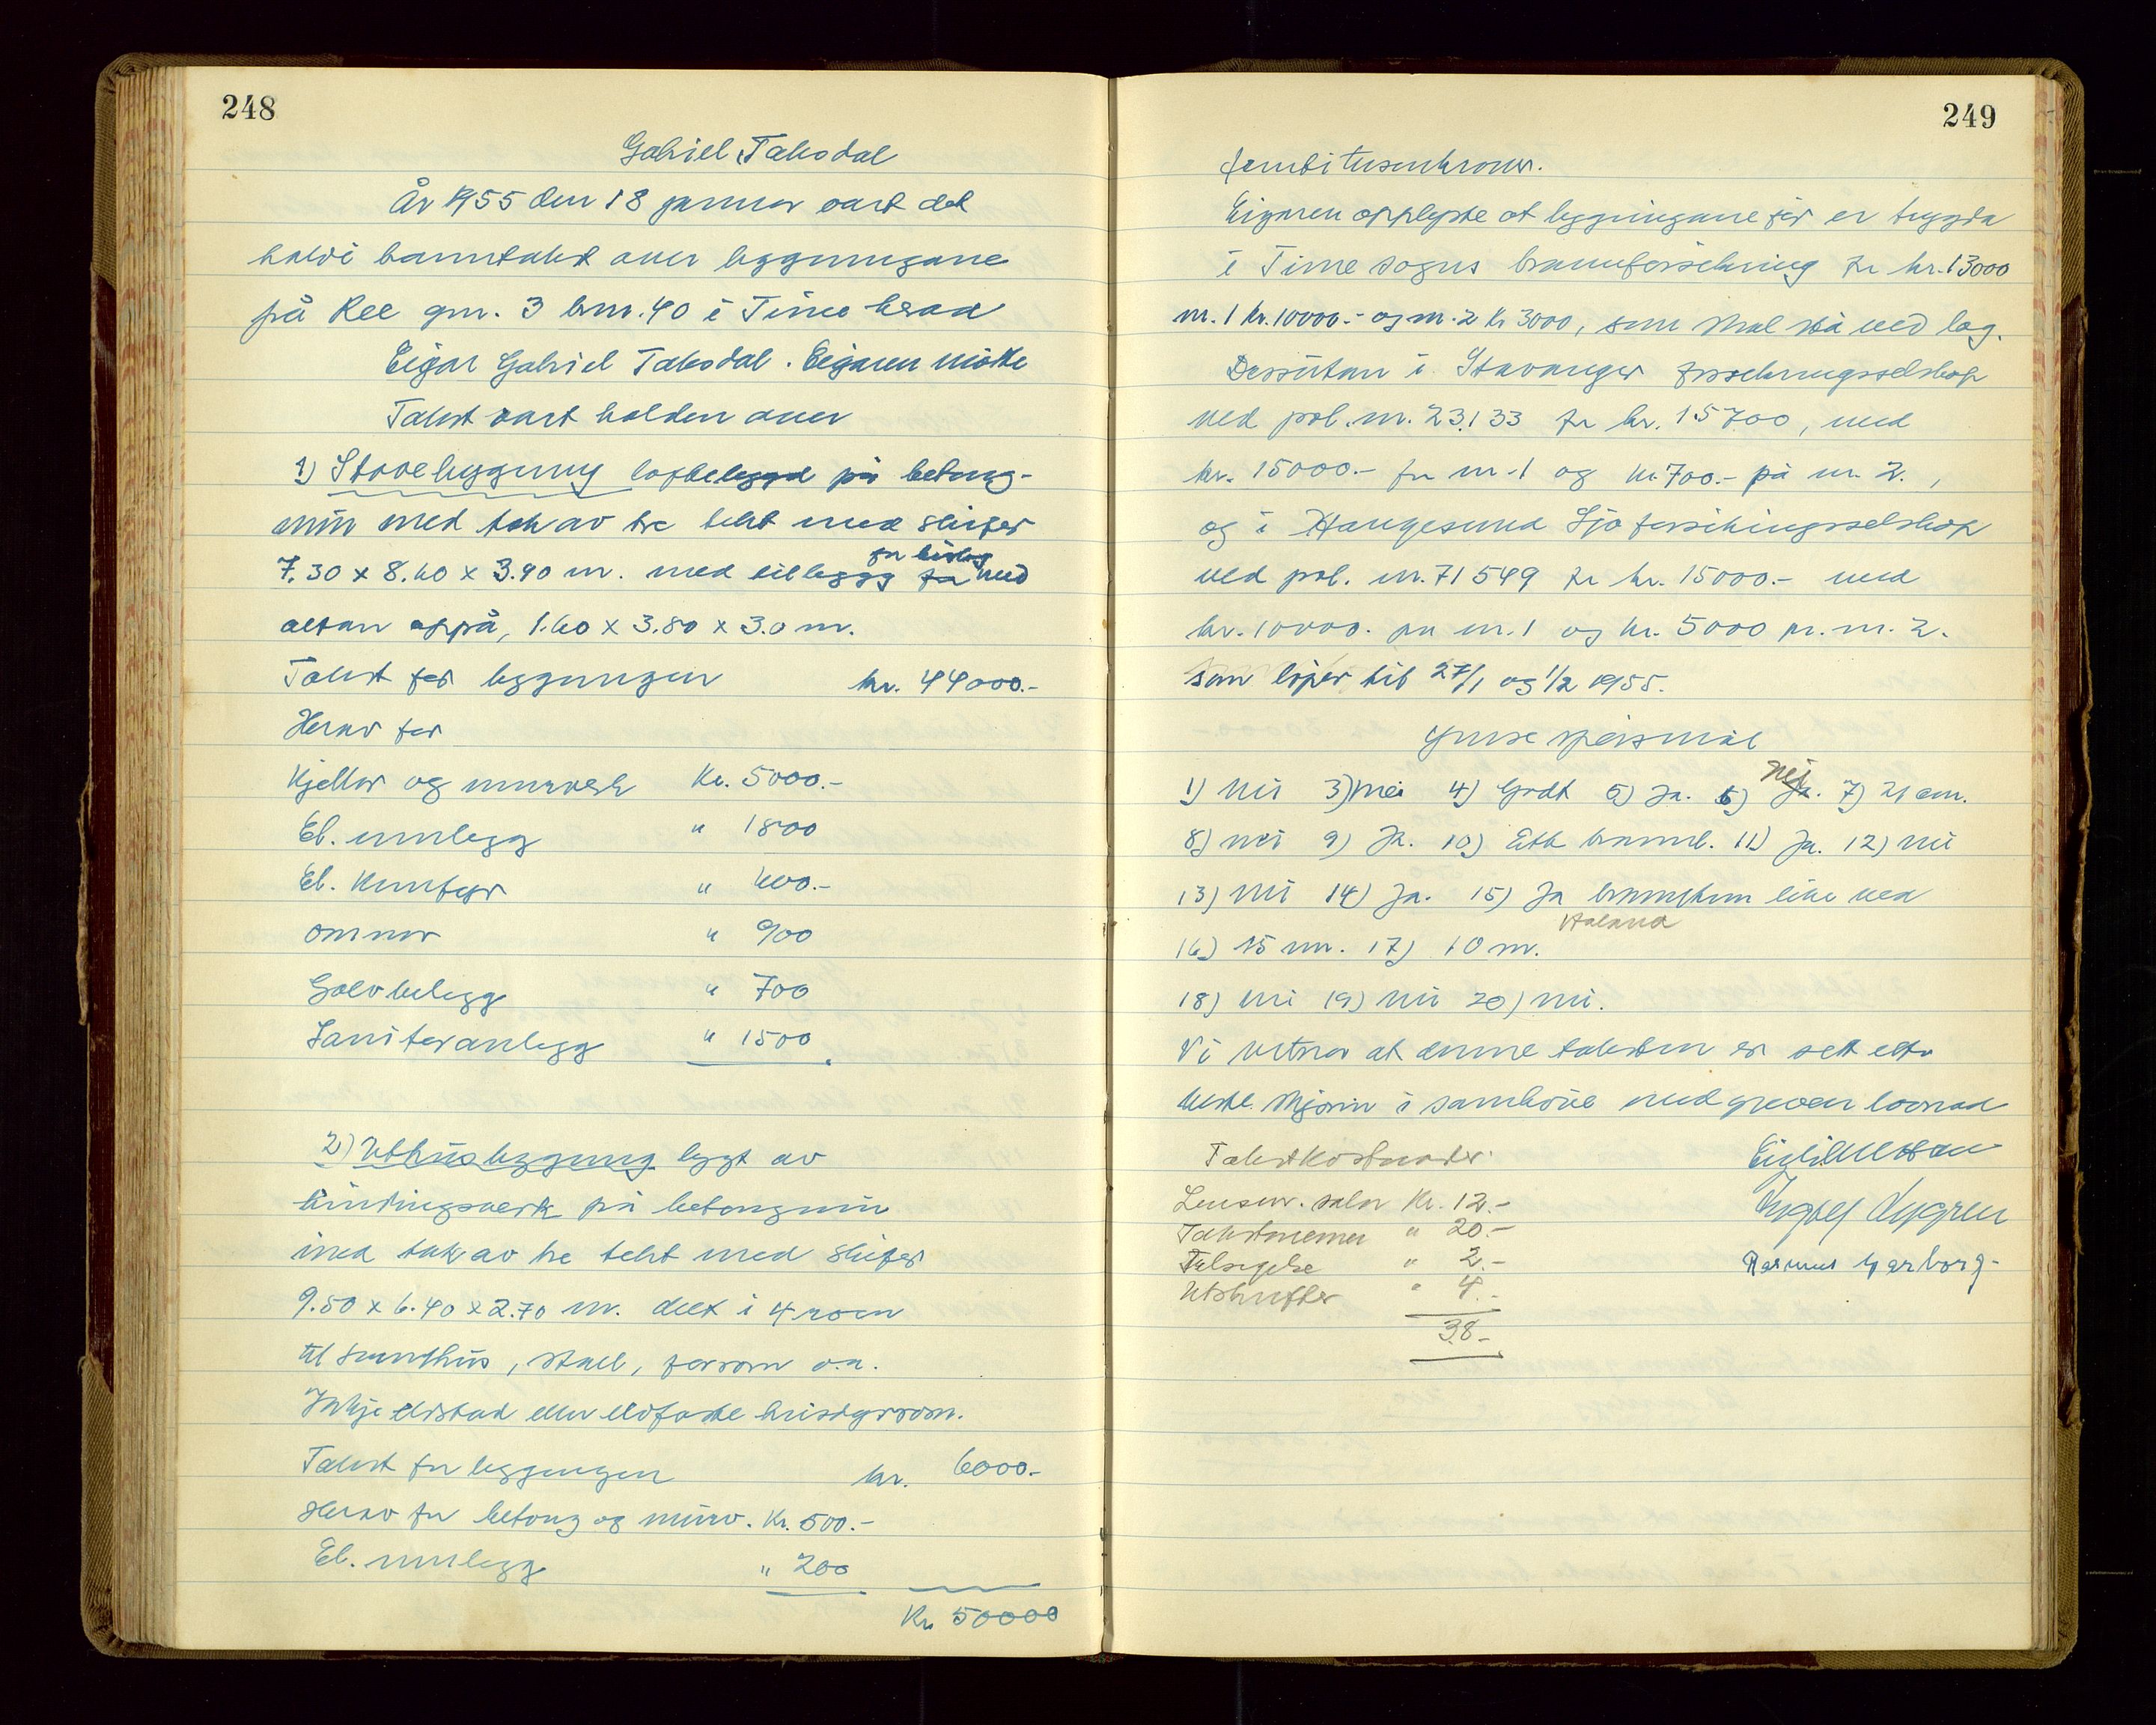 248
Gabriel Taksdal
År 1955 den 18 januar vart det
haldi branntakst over bygningane
på Ree gnr. 3 bnr. 40 i Time herad
Eigar Gabriel Taksdal. Eigaren møtte
Takst vart halden over
1) Stovebygning loftbelagd på betong-
mur med tak av tre tekt med skifer
for bislag
7.30 x 8.60 x 3.90 m. med tillegg for med
altan oppå, 1.60 x 3.80 x 3.0 m.
Takst for bygningen kr. 44000.-
Herav for
Kjellar og murverk Kr. 5000.-
El. innlegg " 1800
El. Komfyr " 600.-
Omnar " 900
Golvbelegg " 700
Saniteranlegg " 1500
2) Uthusbygning bygt av
bindingsverk på betongmur
med tak av tre tekt med skifer
9.50 x 6.40 x 2.70 m. delt i 4 rom
til grishus, stall, forrom o.a.
Inkje eldstad eller eldfaste husdyrrom.
Takst for bygningen kr. 6000.-
Herav for betong og murv. Kr. 500.-
El. innlegg " 200
Kr. 50000
249
femtitusenkroner.
Eigaren opplyste at bygningane før er trygda
i Time sogns brannforsikring for kr. 13000
nr. 1 kr. 10000.- og nr. 2 Kr 3000, som skal stå ved lag.
Dessutan i Stavanger forsikringsselskap
ved pol. nr. 23133 for kr. 15700, med
kr. 15000.- for nr. 1 og kr. 700.- på nr. 2.,
og i Haugesund Sjøforsikringsselskap
ved pol. nr. 71549 for kr. 15000.- med
kr. 10000. på nr. 1 og kr. 5000 på nr. 2.
som løper til 27/1 og 1/2 1955.
Ymse spørsmål
1) Nei 3) Nei 4) Godt 5) Ja. 6) Ja. Nei 7) 21 cm.
8) Nei 9) Ja. 10) Ett brannb. 11) Ja. 12) Nei
13) Nei 14) Ja. 15) Ja like ved
Haland
16) 15 m. 17) 10 m.
18) Nei 19) Nei 20) Nei.
Vi vitner at denne taksten er sett etter
beste skjønn i samhøve med greven lovnad
Takstkostnader.
Lensm. salær Kr. 12.-
Takstnemner " 20.-
Tilsigelse " 2.-
Utskrifter " 4.-
38.-
Ingolf Lygren
Rasmus Garborg-